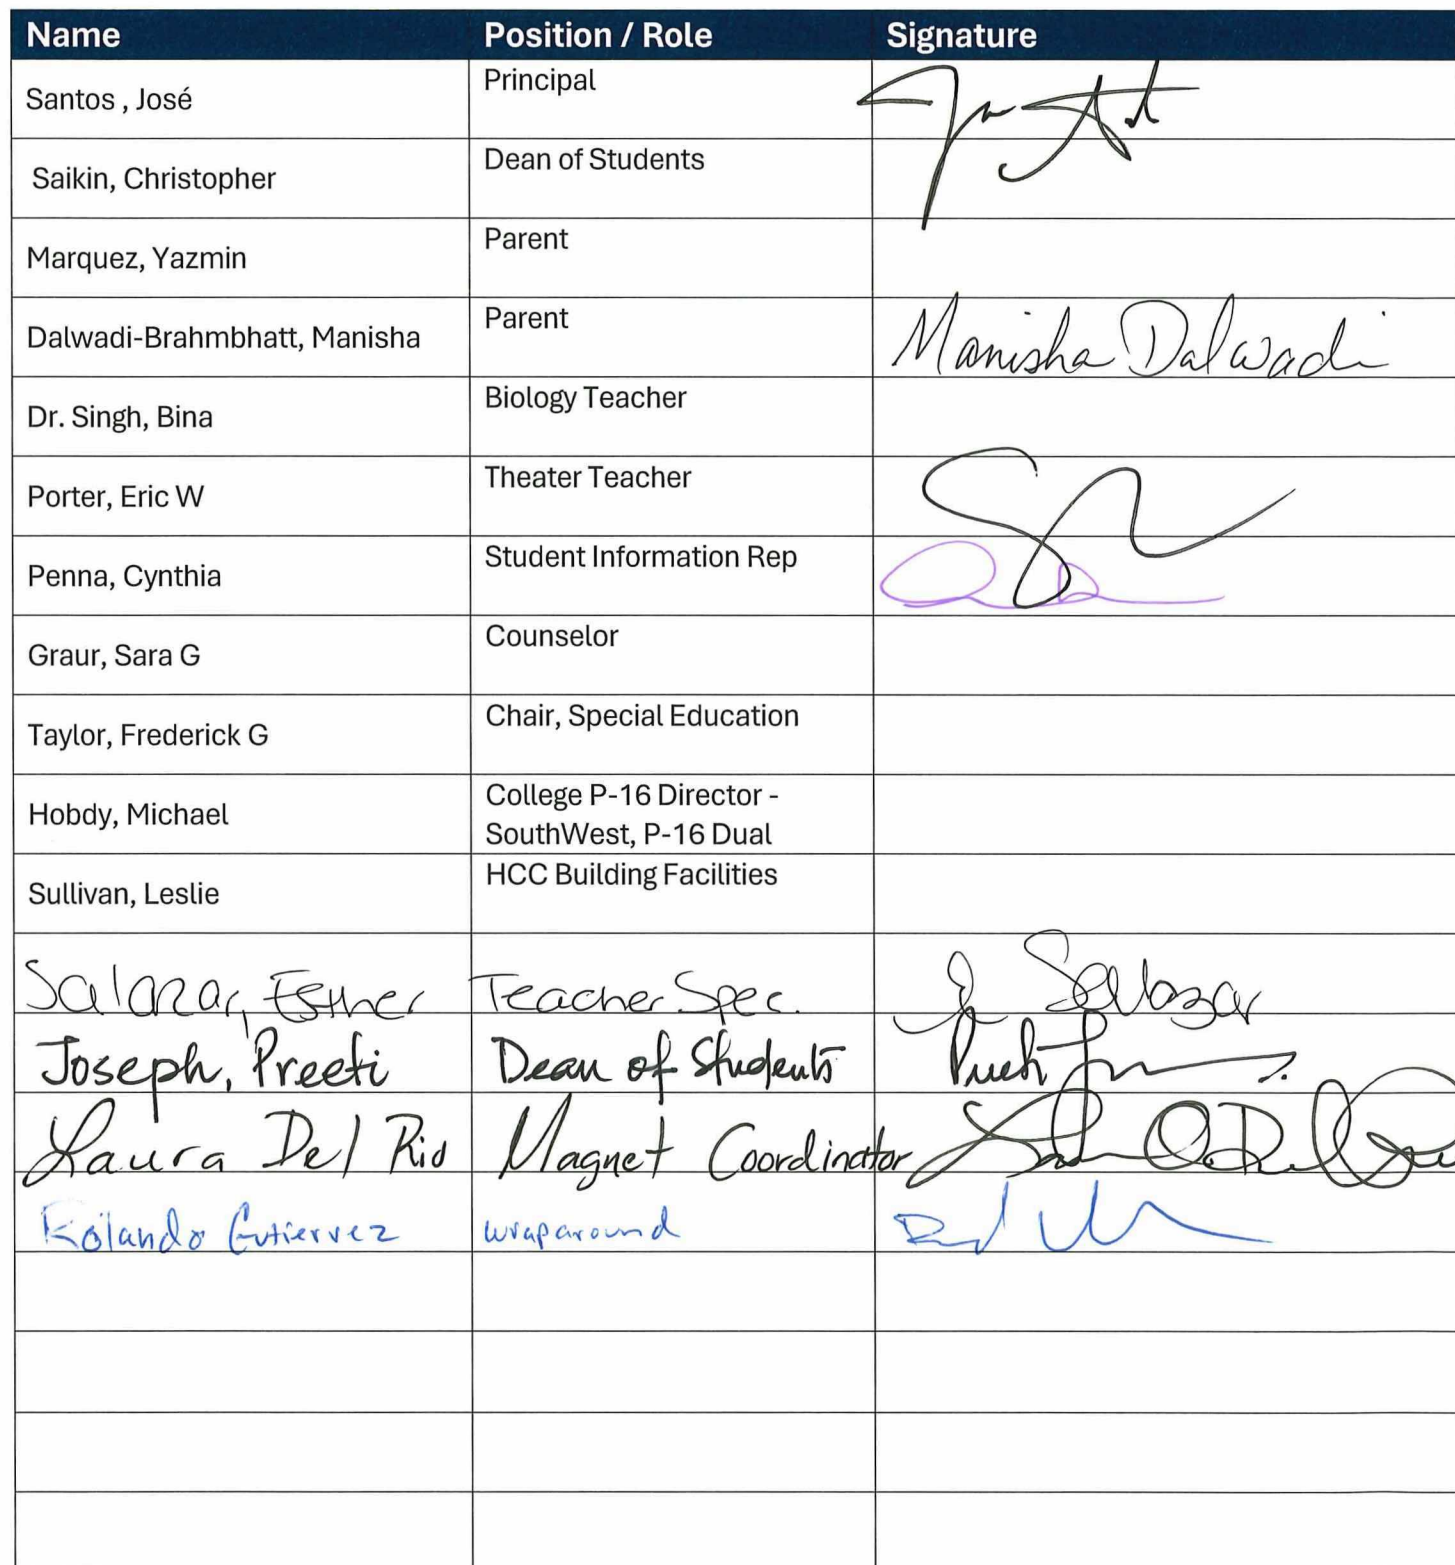 Name Position / Role Signature
Santos , José Principal
Saikin, Christopher Dean of Students
Marquez, Yazmin Parent
Dalwadi-Brahmbhatt, Manisha Parent Manisha Dalwadi
Dr. Singh, Bina Biology Teacher
Porter, Eric W Theater Teacher
Penna, Cynthia Student Information Rep
Graur, Sara G Counselor
Taylor, Frederick G Chair, Special Education
Hobdy, Michael College P-16 Director -
SouthWest, P-16 Dual
Sullivan, Leslie HCC Building Facilities
Salazar, Esther Teacher Spec. Salazar
Joseph, Preeti Dean of Students
Laura Del Rio Magnet Coordinator
Rolando Gutierrez wraparound